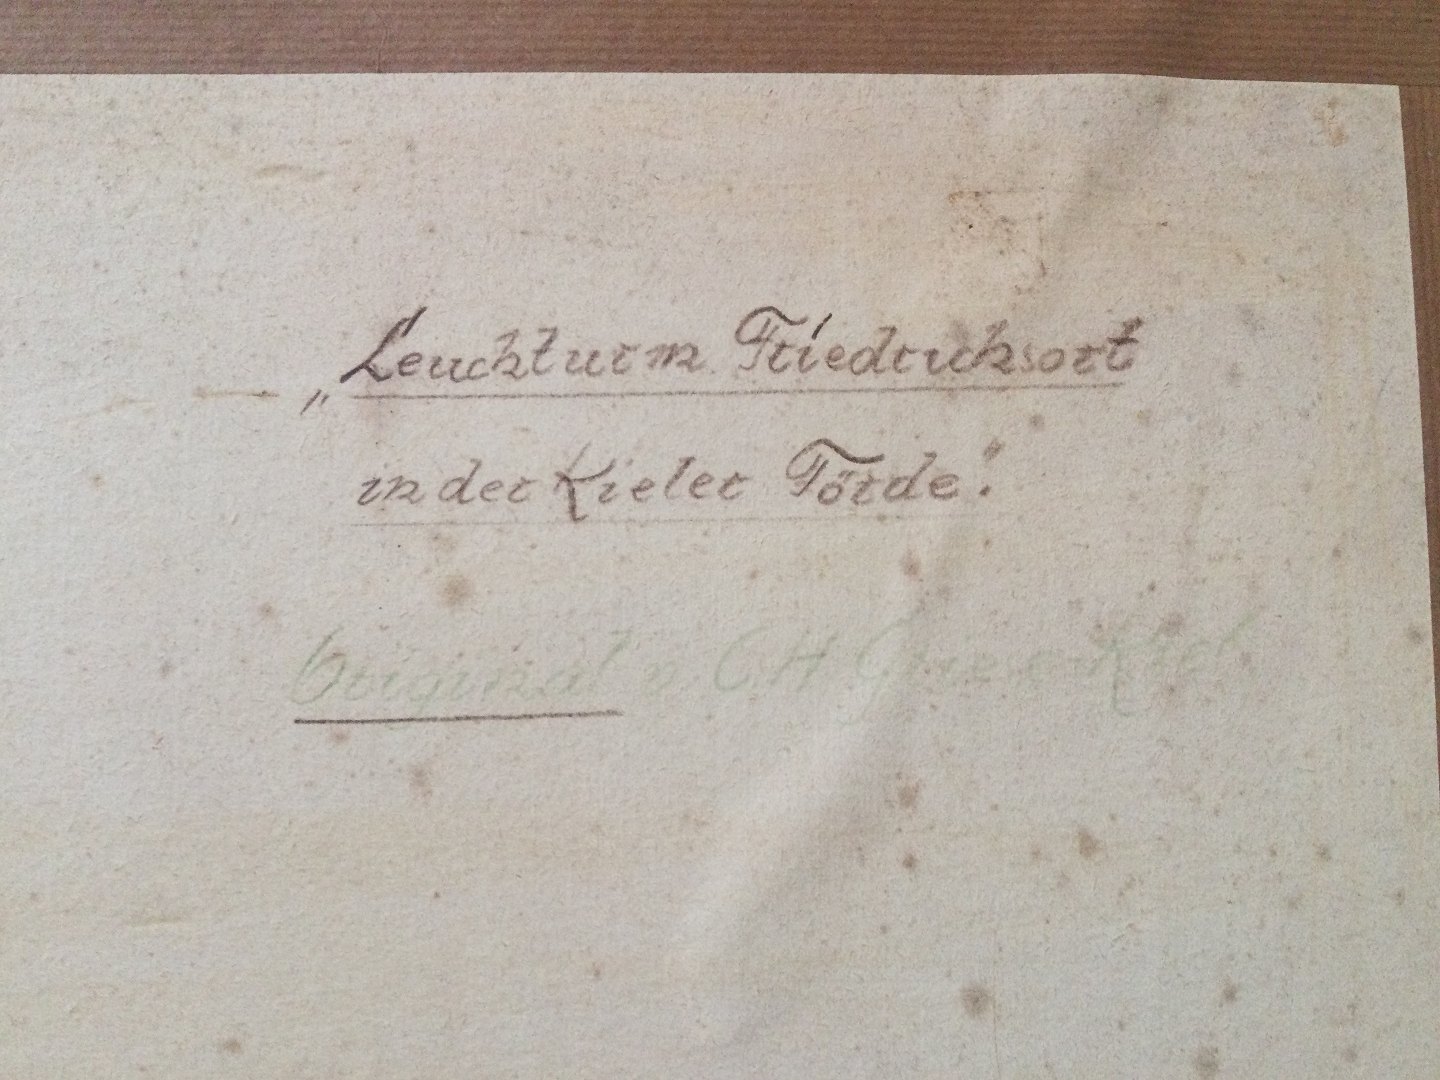 „Leuchturm Friedrichsort
in der Kieler Förde".
Original v. C H Griese Kiel